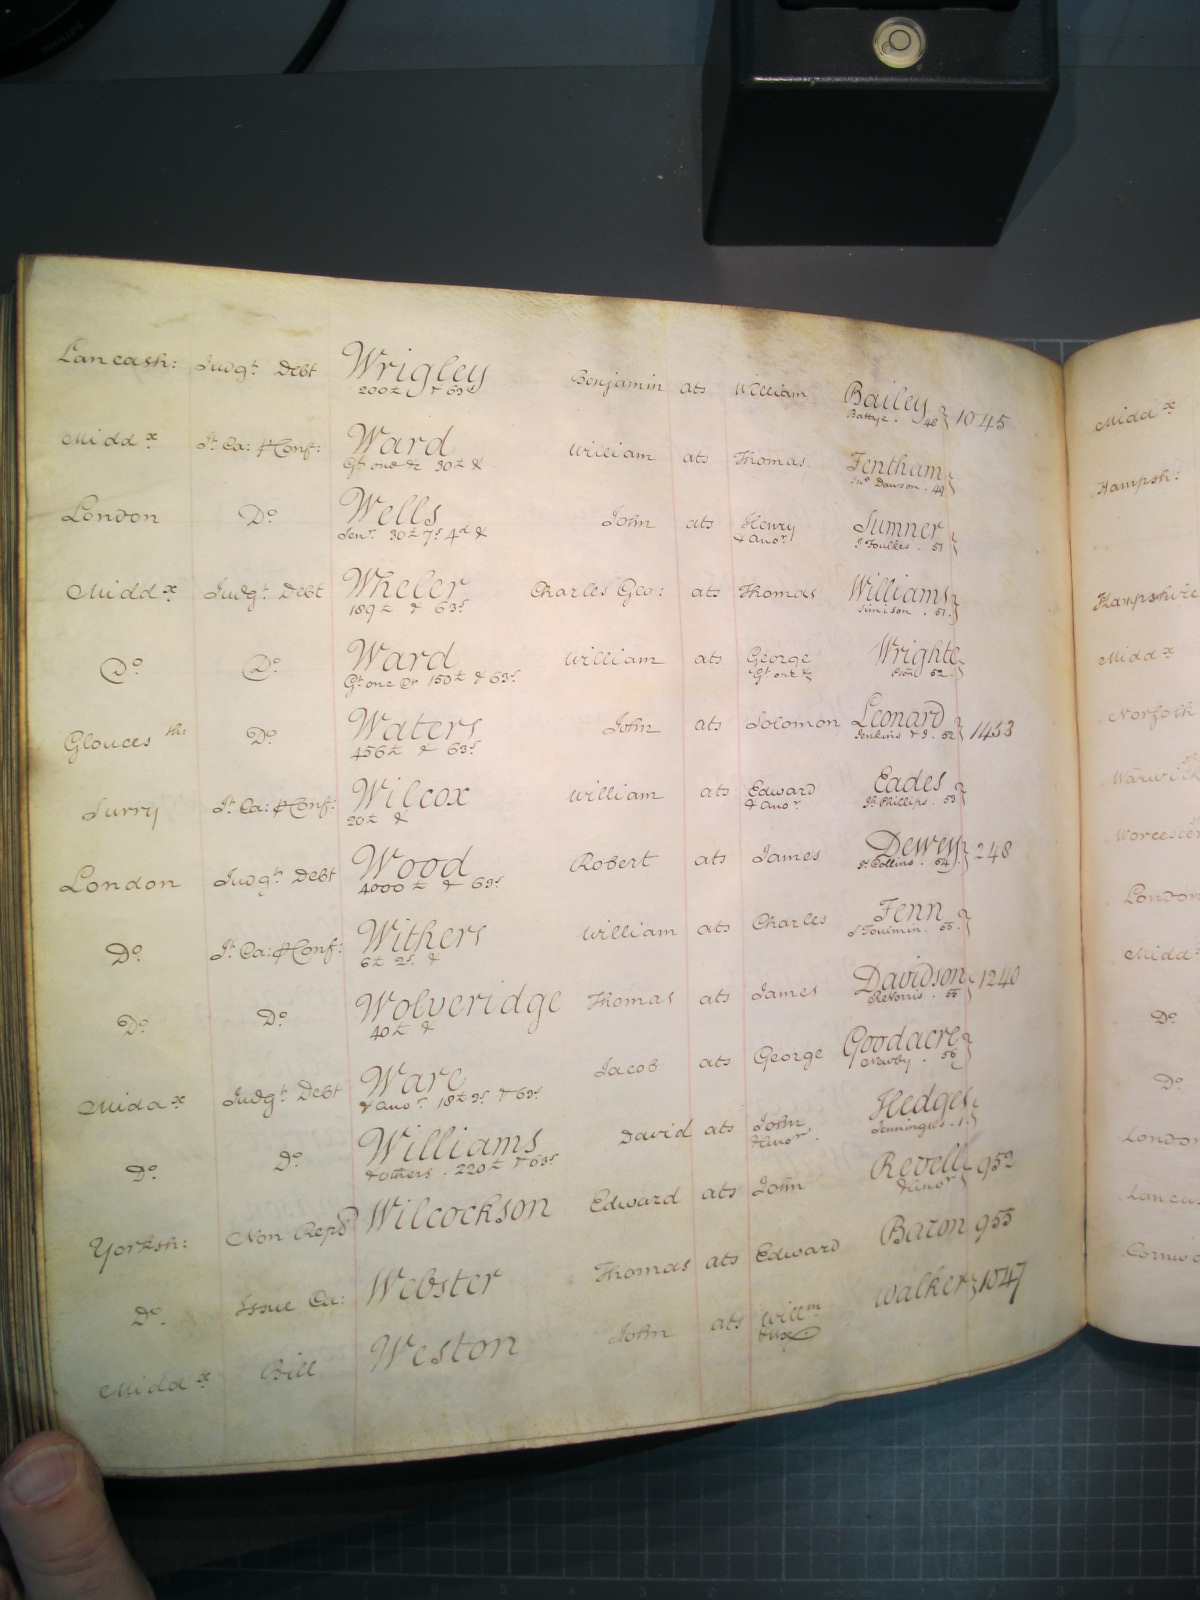 Lancash: Judgt. Debt Wrigley Benjamin ats William Bailey 1045
200£ & 63s Battye . 48
Middx Jt. Ca: & Conf: Ward William ats Thomas Fentham
Gt. one &c 30£ & Jno. Dawson . 49
London Do. Wells John ats Henry Sumner
Senr. 30£ 7s 4d & & anor. J Foulkes . 51
Middx Judgt. Debt Wheler Charles Geo: ats Thomas Williams
189£ & 63s Simison . 51
Do. Do. Ward William ats George Wrighte
Gt. one &c 150£ & 63s Gt. one & 52
Glouces shr: Do. Waters John ats Solomon Leonard 1453
456£ & 63s Jenkins & J . 52
Surry Jt. Ca: & Conf: Wilcox William ats Edward Eades
20£ & & anor. Jn. Phillips . 53
London Judgt. Debt Wood Robert ats James Dewey 248
4000£ & 63s Collins . 54
Do. Jt. Ca: & Conf: Withers William ats Charles Fenn
6£ 2s & J Toulmin . 55
Do. Do. Wolveridge Thomas ats James Davidson 1240
40£ & . 55
Middx Judgt. Debt Ware Jacob ats George Goodacre
& anor. 18£ 9s & 63s . 56
Do. Do. Williams David ats John Hedges
& others . 220£ & 63s & anor. Jennings . 1
Yorksh: Non Repd Wilcockson Edward ats John Revell 952
& anor
Do. Issue Ca: Webster Thomas ats Edward Baron 955
Middx Bill Weston John ats Willm Walker 1047
& ux
Middx
Hampsh:
Hampshire
Middx
Norfolk
Warwick
Worcester
London
Middx
Do.
Do.
London
Lanca
Cornw